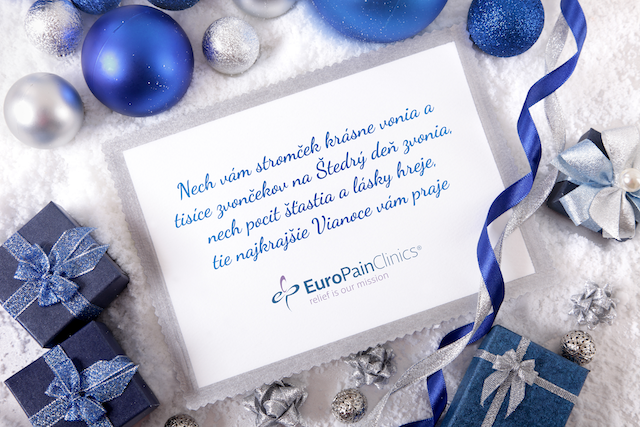 Nech vám stromček krásne vonia a
tisíce zvončekov na Štedrý deň zvonia,
nech pocit šťastia a lásky hreje,
tie najkrajšie Vianoce vám praje
EuroPainClinics®
relief is our mission